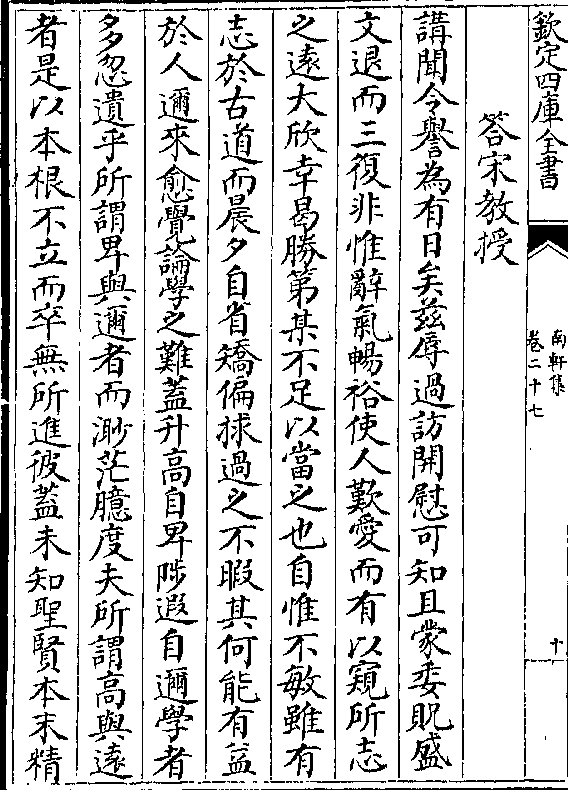 欽定四庫全書
南軒集
卷二十七
十
答宋教授
講聞令譽為有日矣茲辱過訪開慰可知且蒙委貺盛
文退而三復非惟辭氣暢裕使人歎愛而有以窺所志
之遠大欣幸曷勝第某不足以當之也自惟不敏雖有
志於古道而晨夕自省矯偏捄過之不暇其何能有益
於人邇來愈覺論學之難蓋升高自卑陟遐自邇學者
多忽遺乎所謂卑與邇者而渺茫臆度夫所謂高與遠
者是以本根不立而卒無所進彼蓋未知聖賢本末精